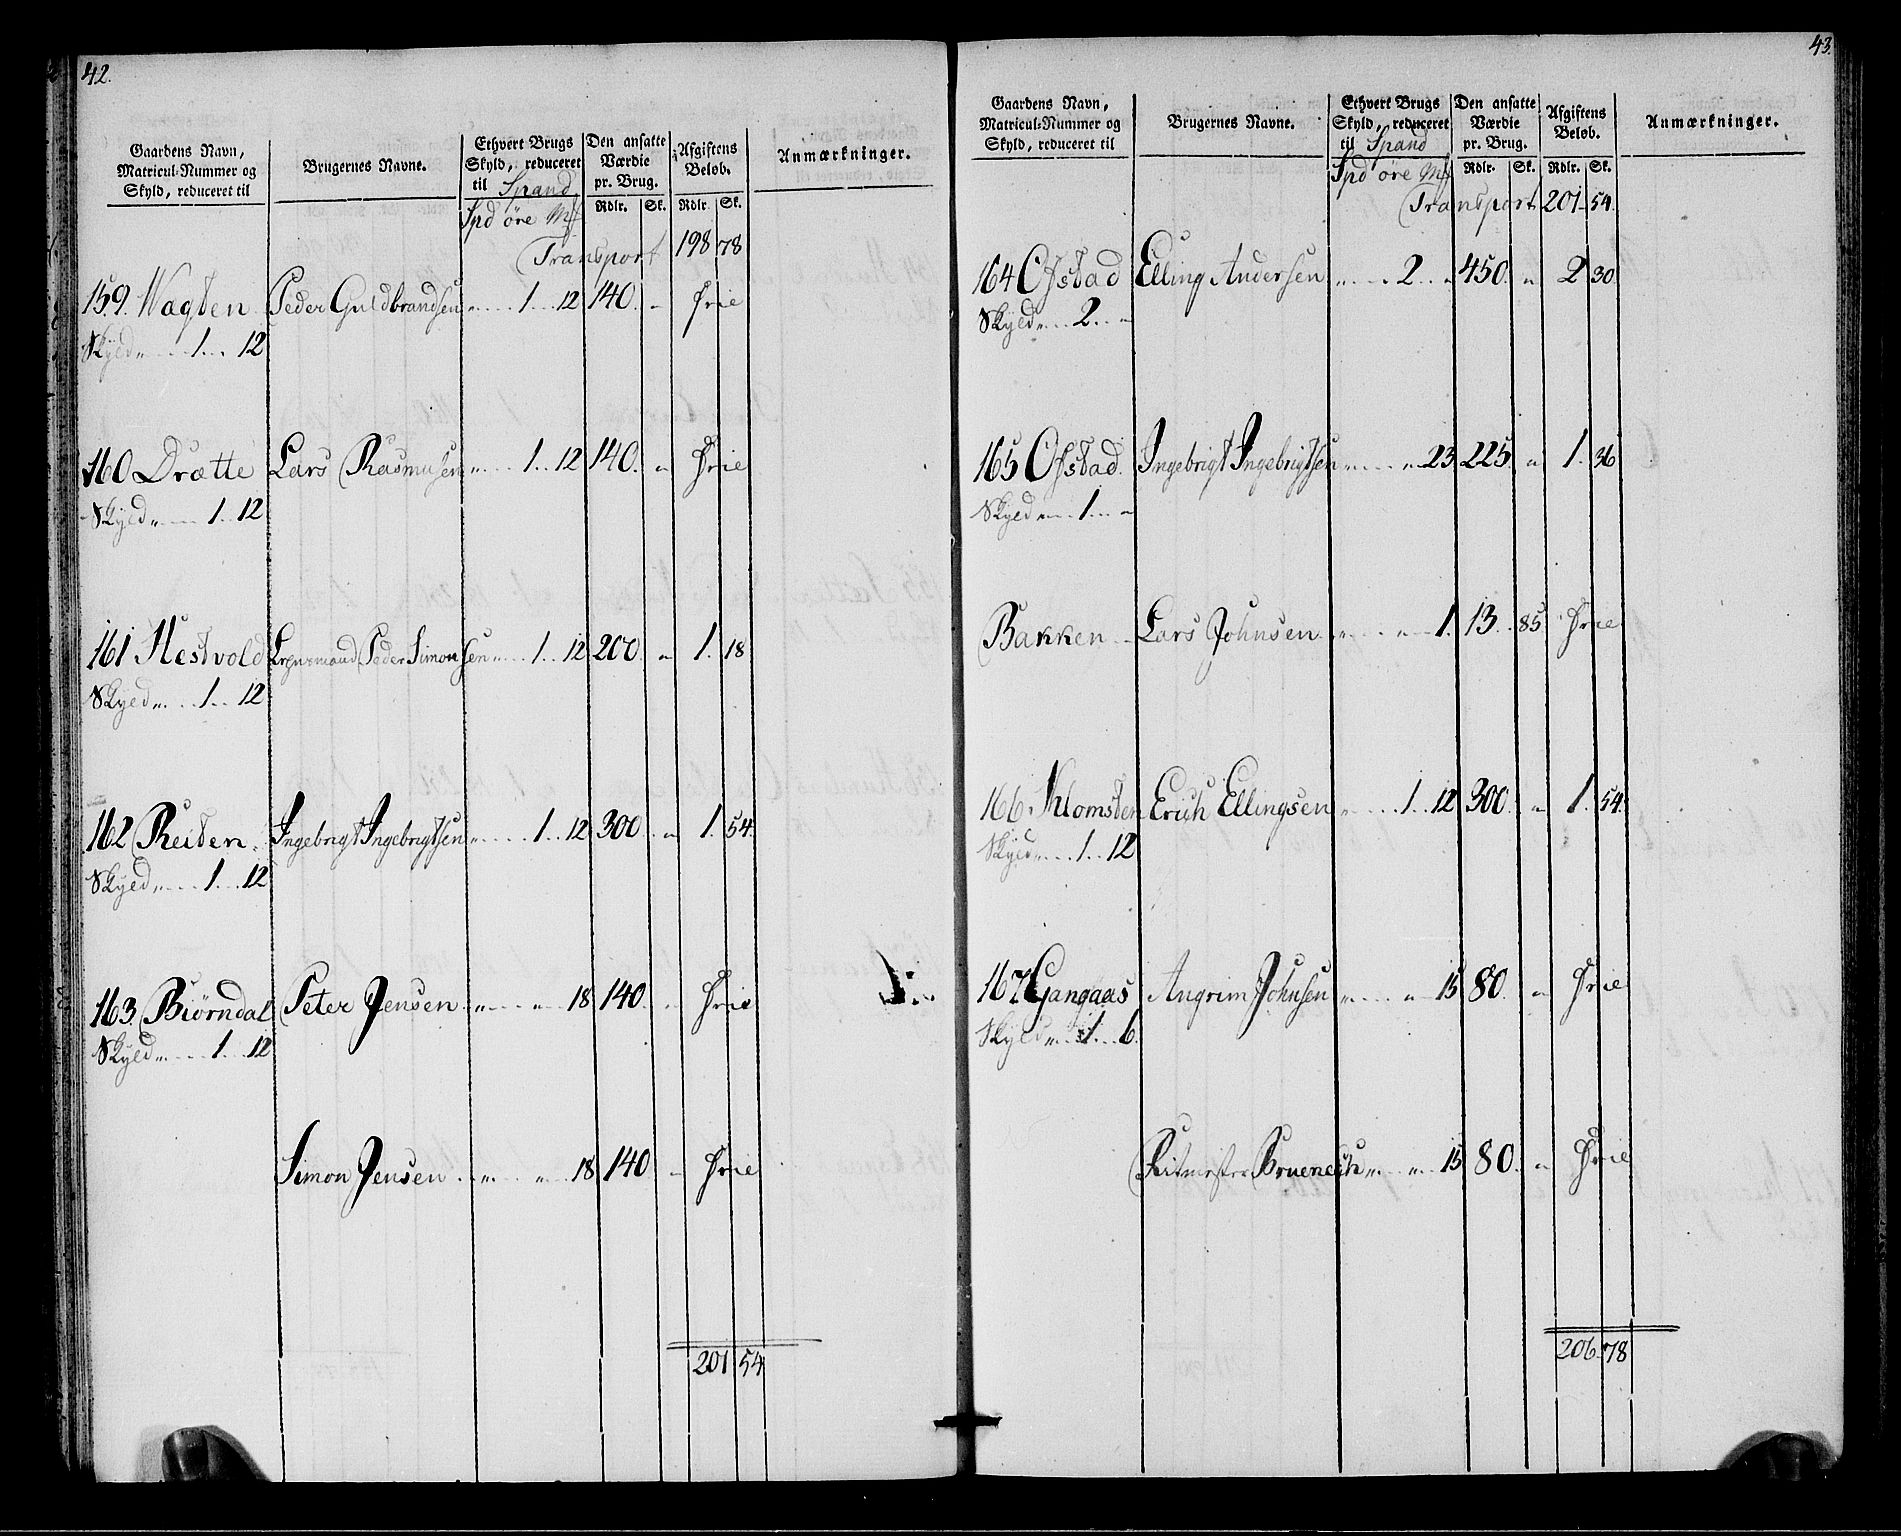 42.
Gaardens Navn, Matricul-Nummer og Skyld, reduceret til | Brugernes Navne. | Ethvert Brugs Skyld, reduceret til Spand | Den ansatte Værdie pr. Brug. | Afgiftens Beløb. | Anmærkninger.
Spd øre Mk | Rdlr. | Sk. | Rdlr. | Sk.
Transport 198 78
159. Wagten Peder Guldbrandsen " 1 12 140. " Frie
Skyld " 1 12
160 Drætte Lars Rasmusen " 1 12 140. " Frie
Skyld " 1 12
161 Hestvold Legnsmand Peder Simonsen " 1 12 200 " 1. 18
Skyld " 1 12
162 Reiten. Ingebrigt Ingebrigtsen " 1 12 300 " 1. 54
Skyld " 1 12
163. Biørndal Peter Jensen " " 18 140. " Frie
Skyld " 1 12
Simon Jensen " " 18 140 " Frie
201 54
43.
Gaardens Navn, Matricul-Nummer og Skyld, reduceret til | Brugernes Navne. | Ethvert Brugs Skyld, reduceret til Spand | Den ansatte Værdie pr. Brug. | Afgiftens Beløb. | Anmærkninger.
Spd øre Mk | Rdlr. | Sk. | Rdlr. | Sk.
Transport 201 54
164 Ofstad Elling Andersen " 2 " 450. " 2 30
Skyld " 2 "
165 Ofstad. Ingebrigt Ingebrigtsen " " 23 225 " 1. 36
Skyld " 1 "
Bakken Lars Johnsen " " 1. 13. 85 Frie
166. Klomsten Erich Ellingsen " 1 12 300. " 1. 54
Skyld " 1 12
167 Gangaas Angrim Johnsen " " 15 80. " Frie
Skyld " 1 6.
Ritmester Bruenech " " 15 80. " Frie
206 78